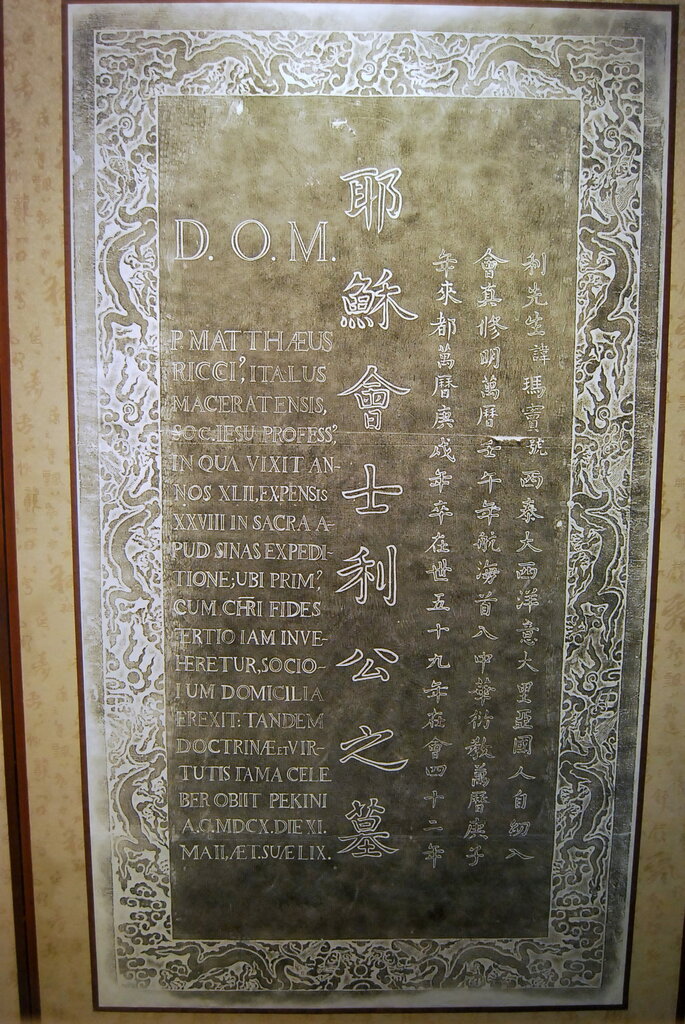 D. O. M.
P. MATTHÆUS
RICCI', ITALUS
MACERATENSIS,
SOC. IESU PROFESS'
IN QUA VIXIT AN-
NOS XLII, EXPENSIS
XXVIII IN SACRA A-
PUD SINAS EXPEDI-
TIONE; UBI PRIM'
CUM CHRI FIDES
TERTIO IAM INVE-
HERETUR, SOCIO-
IUM DOMICILIA
EREXIT: TANDEM
DOCTRINÆ ET VIR-
TUTIS FAMA CELE
BER OBIIT PEKINI
A.C. MDCX. DIE XI.
MAII, ÆT. SUÆ LIX.
耶穌會士利公之墓
利先生諱瑪竇號西泰大西洋意大里亞國人自幼入
會真修明萬曆壬午年航海首入中華衍教萬曆庚子
年來都萬曆庚戌年卒在世五十九年在會四十二年